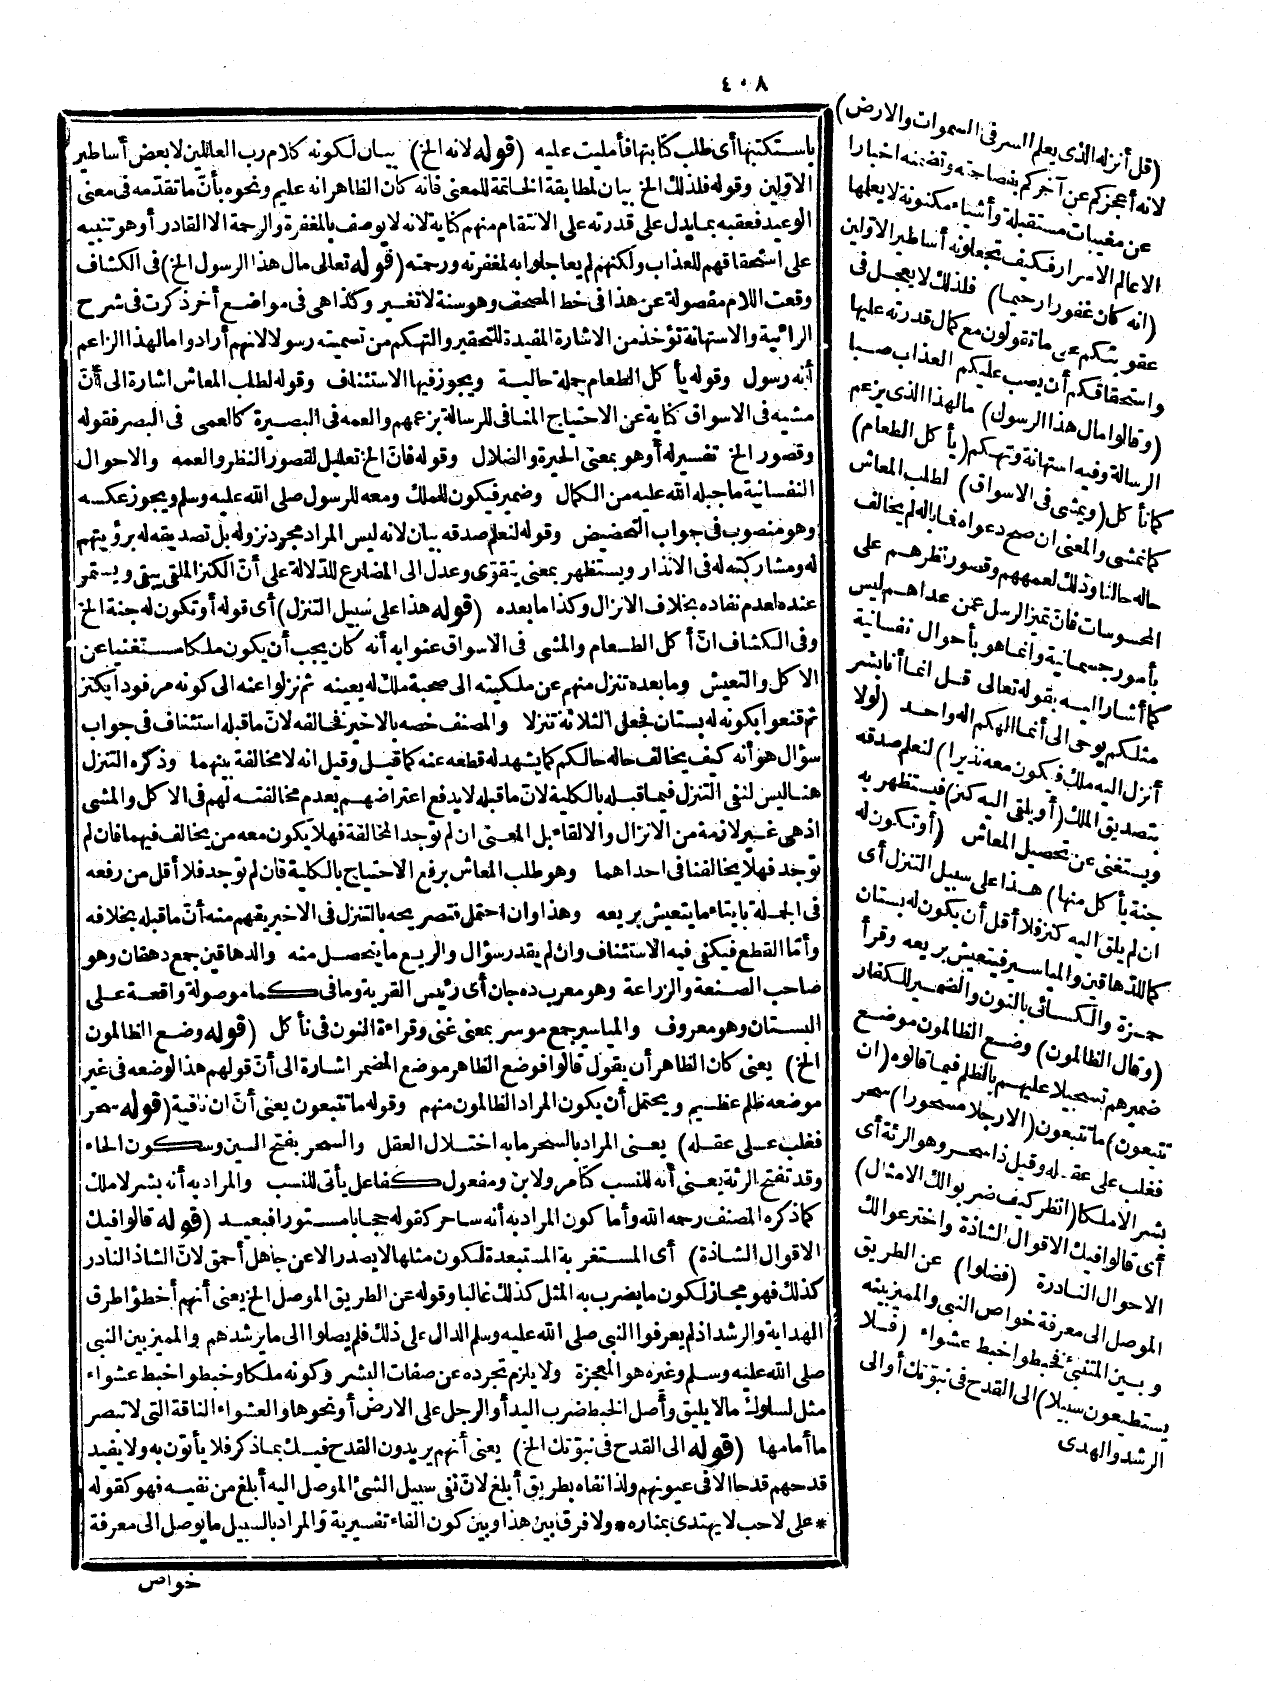 ٤٠٨
(قل أنزله الذى يعلم السر فى السموات والارض)
لانه أعجزكم عن آخركم بفصاحته وتضمنه اخبارا
عن مغيبات مستقبلة وأشياء مكنونة لا يعلمها
الا عالم الاسرار فكيف تجعلونه أساطير الاولين
(انه كان غفورا رحيما) فلذلك لا يعجل فى
عقوبتكم على ما تقولون مع كمال قدرته عليها
واستحقاقكم أن يصب عليكم العذاب صبا
(وقالوا مال هذا الرسول) ما لهذا الذى يزعم
الرسالة وفيه استهانة وتهكم (يأكل الطعام)
كما نأكل (ويمشى فى الاسواق) لطلب المعاش
كما نمشى والمعنى ان صح دعواه فما باله لم يخالف
حاله حالنا وذلك لعمههم وقصور نظرهم على
المحسوسات فان تميز الرسل عمن عداهم ليس
بأمور جسمانية وانما هو بأحوال نفسانية
كما أشار اليه بقوله تعالى قل انما أنا بشر
مثلكم يوحى الى أنما الهكم اله واحد (لولا
أنزل اليه ملك فيكون معه نذيرا) لنعلم صدقه
بتصديق الملك (أو يلقى اليه كنز) فيستظهر به
ويستغنى عن تحصيل المعاش (أو تكون له
جنة يأكل منها) هذا على سبيل التنزل أى
ان لم يلق اليه كنز فلا أقل أن يكون له بستان
كما للدهاقين والمياسير فيتعيش بريعه وقرأ
حمزة والكسائى بالنون والضمير للكفار
(وقال الظالمون) وضع الظالمون موضع
ضميرهم تسجيلا عليهم بالظلم فيما قالوه (ان
تتبعون) ما تتبعون (الا رجلا مسحورا) سحر
فغلب على عقله وقيل ذا سحر وهو الرئة أى
بشرا لا ملكا (انظر كيف ضربوا لك الامثال)
أى قالوا فيك الاقوال الشاذة واخترعوا لك
الاحوال النادرة (فضلوا) عن الطريق
الموصل الى معرفة خواص النبى والمميز بينه
وبين المتنبئ فخبطوا خبط عشواء (فلا
يستطيعون سبيلا) الى القدح فى نبوتك أو الى
الرشد والهدى
باستكتبتها أى طلب كتابتها فأمليت عليه (قوله لانه الخ) بيان لكونه كلام رب العالمين لا بعض أساطير
الاولين وقوله فلذلك الخ بيان لمطابقة الخاتمة للمعنى فانه كان الظاهر انه عليم ونحوه بأن ما تقدمه فى معنى
الوعيد فعقبه بما يدل على قدرته على الانتقام منهم كناية لانه لا يوصف بالمغفرة والرحمة الا القادر أو هو تنبيه
على استحقاقهم للعذاب ولكنهم لم يعاجلوا به لمغفرته ورحمته (قوله تعالى مال هذا الرسول الخ) فى الكشاف
وقعت اللام مفصولة عن هذا فى خط المصحف وهو سنة لا تغير وكذا هى فى مواضع أخر ذكرت فى شرح
الرائية والاستهانة تؤخذ من الاشارة المفيدة للتحقير والتهكم من تسميته رسولا لانهم أرادوا ما لهذا الزاعم
أنه رسول وقوله يأكل الطعام جملة حالية ويجوز فيها الاستئناف وقوله لطلب المعاش اشارة الى أن
مشيه فى الاسواق كناية عن الاحتياج المنافى للرسالة بزعمهم والعمه فى البصيرة كالعمى فى البصر فقوله
وقصور الخ تفسير له أو هو بمعنى الحيرة والضلال وقوله فان الخ تعليل لقصور النظر والعمه والاحوال
النفسانية ما جبله الله عليه من الكمال وضمير فيكون للملك ومعه للرسول صلى الله عليه وسلم ويجوز عكسه
وهو منصوب فى جواب التحضيض وقوله لنعلم صدقه بيان لانه ليس المراد مجرد نزوله بل تصديقه له برؤيتهم
له ومشاركته له فى الانذار ويستظهر بمعنى يتقوى وعدل الى المضارع للدلالة على أن الكنز الملقى يبقى ويستمر
عنده لعدم نفاده بخلاف الانزال وكذا ما بعده (قوله هذا على سبيل التنزل) أى قوله أو تكون له جنة الخ
وفى الكشاف ان أكل الطعام والمشى فى الاسواق عنوا به أنه كان يجب أن يكون ملكا مستغنيا عن
الاكل والتعيش وما بعده تنزل منهم عن ملكيته الى صحبة ملك له يعينه ثم نزلوا عنه الى كونه مرفودا بكنز
ثم قنعوا بكونه له بستان فجعل الثلاثة تنزلا والمصنف خصه بالاخير فخالفه لان ما قبله استئناف فى جواب
سؤال هو أنه كيف يخالف حاله حالكم كما يشهد له قطعه عنه كما قيل وقيل انه لا مخالفة بينهما وذكره التنزل
هنا ليس لنفى التنزل فيما قبله بالكلية لان ما قبله لا يدفع اعتراضهم بعدم مخالفته لهم فى الاكل والمشى
اذ هى غير لازمة من الانزال والالقاء بل المعنى ان لم توجد المخالفة فهلا يكون معه من يخالف فيهما فان لم
توجد فهلا يخالفنا فى احداهما وهو طلب المعاش برفع الاحتياج بالكلية فان لم توجد فلا أقل من رفعه
فى الجملة بايتاء ما يتعيش بريعه وهذا وان احتمل فتصريحه بالتنزل فى الاخير يفهم منه أن ما قبله بخلافه
وأما القطع فيكفى فيه الاستئناف وان لم يقدر سؤال والريع ما يتحصل منه والدهاقين جمع دهقان وهو
صاحب الصنعة والزراعة وهو معرب ده جان أى رئيس القرية وما فى كما موصولة واقعة على
البستان وهو معروف والمياسير جمع موسر بمعنى غنى وقراءة النون فى نأكل (قوله وضع الظالمون
الخ) يعنى كان الظاهر أن يقول قالوا فوضع الظاهر موضع المضمر اشارة الى أن قولهم هذا لوضعه فى غير
موضعه ظلم عظيم ويحتمل أن يكون المراد الظالمون منهم وقوله ما تتبعون يعنى أن ان نافية (قوله سحر
فغلب على عقله) يعنى المراد بالسحر ما به اختلال العقل والسحر بفتح السين وسكون الحاء
وقد تفتح الرئة يعنى أنه للنسب كتامر ولابن ومفعول كفاعل يأتى للنسب والمراد به أنه بشر لا ملك
كما ذكره المصنف رحمه الله وأما كون المراد به أنه ساحر كقوله حجابا مستورا فبعيد (قوله قالوا فيك
الاقوال الشاذة) أى المستغربة المستبعدة لكون مثلها لا يصدر الا عن جاهل أحمق لان الشاذ النادر
كذلك فهو مجاز لكون ما يضرب به المثل كذلك غالبا وقوله عن الطريق الموصل الخ يعنى أنهم أخطؤا طرق
الهداية والرشد اذ لم يعرفوا النبى صلى الله عليه وسلم الدال على ذلك فلم يصلوا الى ما يرشدهم والمميز بين النبى
صلى الله عليه وسلم وغيره هو المعجزة ولا يلزم تجرده عن صفات البشر وكونه ملكا وخبطوا خبط عشواء
مثل لسلوك ما لا يليق وأصل الخبط ضرب اليد أو الرجل على الارض أو نحوها والعشواء الناقة التى لا تبصر
ما أمامها (قوله الى القدح فى نبوتك الخ) يعنى أنهم يريدون القدح فيك بما ذكر فلا يأتون به ولا يفيد
قدحهم قدحا الا فى عيونهم ولذا نفاه بطريق أبلغ لان نفى سبيل الشئ الموصل اليه أبلغ من نفيه فهو كقوله
* على لاحب لا يهتدى بمناره * ولا فرق بين هذا وبين كون الفاء تفسيرية والمراد بالسبيل ما يوصل الى معرفة
خواص